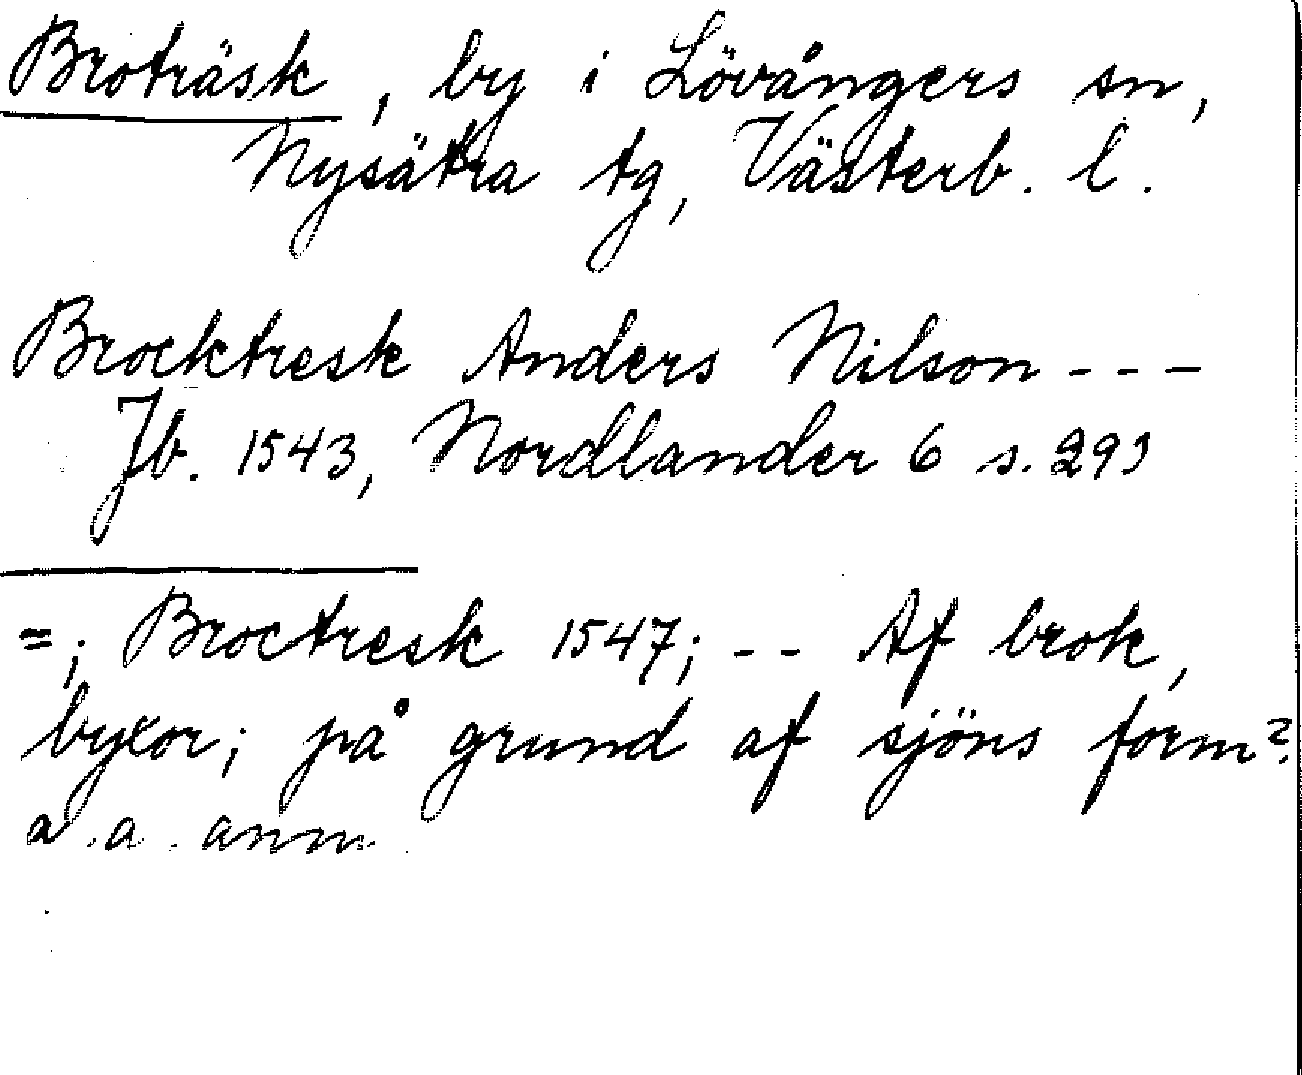 Broträsk, by i Lövångers sn,
Nysätra tg, Västerb. l.
Brocktresk Anders Nilson - - -
Jb. 1543, Nordlander 6 s. 293
=; Broctresk 1547; - - Af brok,
byxor; på grund af sjöns form?
a. a. anm.